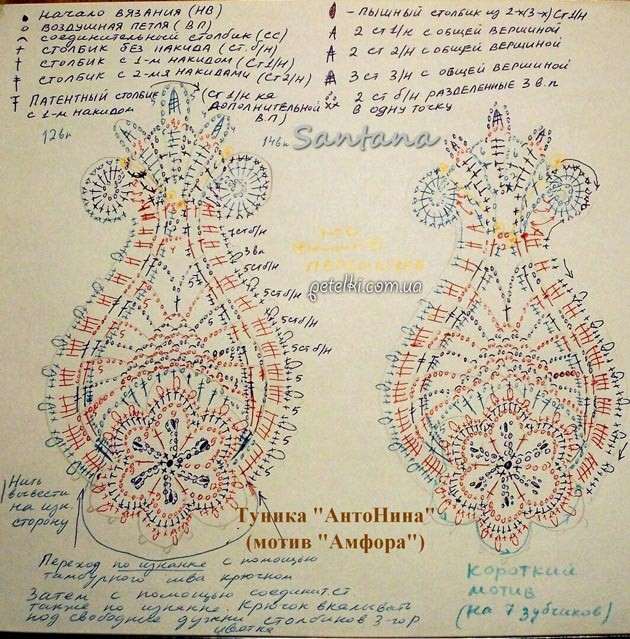 НАЧАЛО ВЯЗАНИЯ (НВ)
ВОЗДУШНАЯ ПЕТЛЯ (ВП)
СОЕДИНИТЕЛЬНЫЙ СТОЛБИК (СС)
СТОЛБИК БЕЗ НАКИДА (СТ.б/Н)
СТОЛБИК С 1-М НАКИДОМ (СТ1/Н)
СТОЛБИК С 2-МЯ НАКИДАМИ (СТ2/Н)
ПАТЕНТНЫЙ СТОЛБИК (СТ1/Н НА
С 1-М НАКИДОМ ДОПОЛНИТЕЛЬНОЙ
В.П)
- ПЫШНЫЙ СТОЛБИК ИЗ 2-Х(3-Х) СТ1/Н
2 СТ 1/Н С ОБЩЕЙ ВЕРШИНОЙ
2 СТ 2/Н С ОБЩЕЙ ВЕРШИНОЙ
3 СТ 3/Н С ОБЩЕЙ ВЕРШИНОЙ
2 СТ б/Н РАЗДЕЛЕННЫЕ 3 В.П
В ОДНУ ТОЧКУ
12вп
14вп
Santana
petelki.com.ua
3вп
5СТб/Н
5СТб/Н
5СТб/Н
5СТб/Н
Нить
вывести
на изн.
сторону
Туника "АнтоНина"
(мотив "Амфора")
Переход по изнанке с помощью
тамбурного шва крючком
Затем с помощью соединит.ст.
также по изнанке. Крючок вкалывать
под свободные дужки столбиков 3-го р
цветка
КОРОТКИЙ
МОТИВ
(на 7 зубчиков)